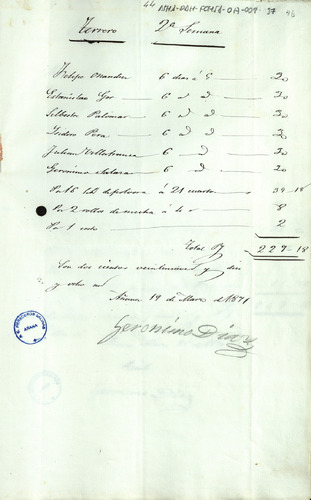 44 37 46
Terrero 2ª Semana
Felipe 6 dias á 5 30
Estanislao Gor 6 d d 30
Silbestre Palomar 6 d d 30
Isidro Pera 6 d d 30
Julian Villafranca 6 d 30
Geronimo 6 d 30
Por 16 lib. de polvora á 21 cuartos 39-18
Por 2 rollos de mecha á 4 8
Por 1 2
Total 229-18
Son dos cientos veintinueve y diez
y ocho
Añana 19 de Marzo 1871
Geronimo Diaz
AÑANA